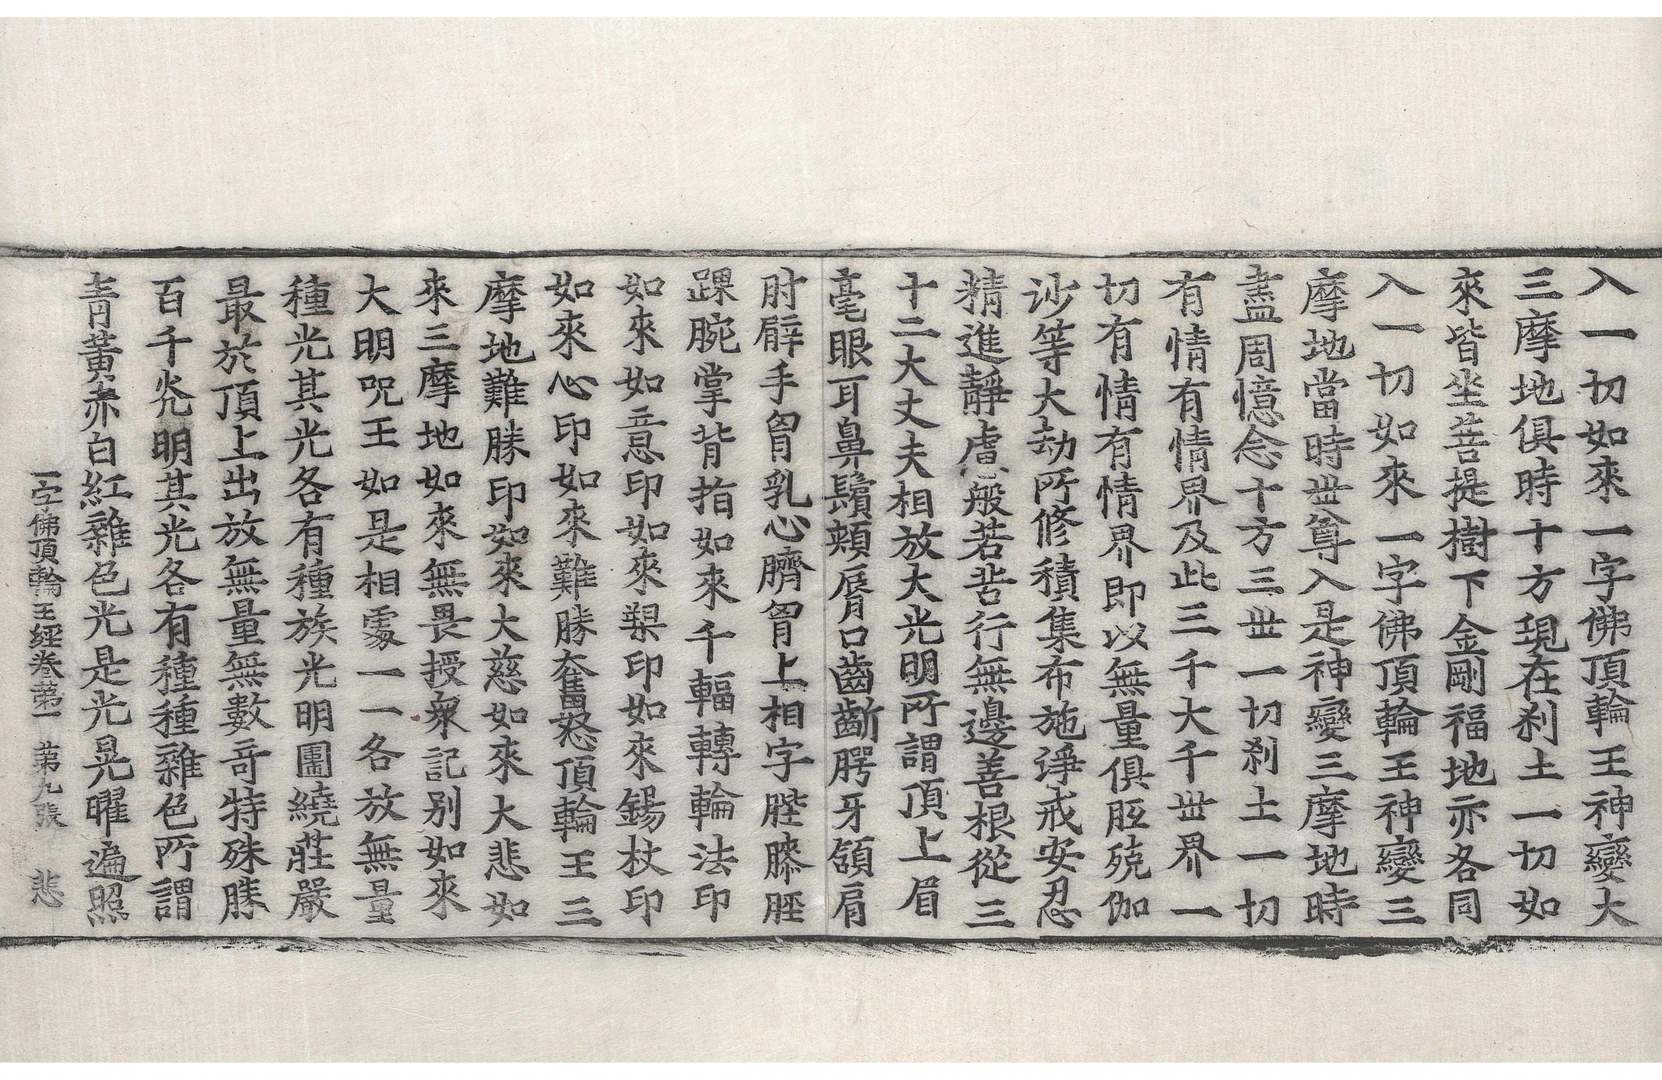 入一切如來一字佛頂輪王神變大
三摩地俱時十方現在刹土一切如
來皆坐菩提樹下金剛福地亦各同
入一切如來一字佛頂輪王神變三
摩地當時世尊入是神變三摩地時
盡周憶念十方三世一切刹土一切
有情有情界及此三千大千世界一
切有情有情界即以無量俱胝殑伽
沙等大劫所修積集布施諍戒安忍
精進靜慮般若苦行無邊善根從三
十二大丈夫相放大光明所謂頂上眉
毫眼耳鼻鬚頰脣口齒齗腭牙頷肩
肘臂手胷乳心臍胷上相字䏶膝脛
踝腕掌背指如來千輻轉輪法印
如來如意印如來槊印如來錫杖印
如來心印如來難勝奮怒頂輪王三
摩地難勝印如來大慈如來大悲如
來三摩地如來無畏授衆記別如來
大明呪王如是相處一一各放無量
種光其光各有種族光明圍繞莊嚴
最於頂上出放無量無數奇特殊勝
百千光明其光各有種種雜色所謂
青黃赤白紅雜色光是光晃曜遍照
一字佛頂輪王經卷第一　第九張　悲